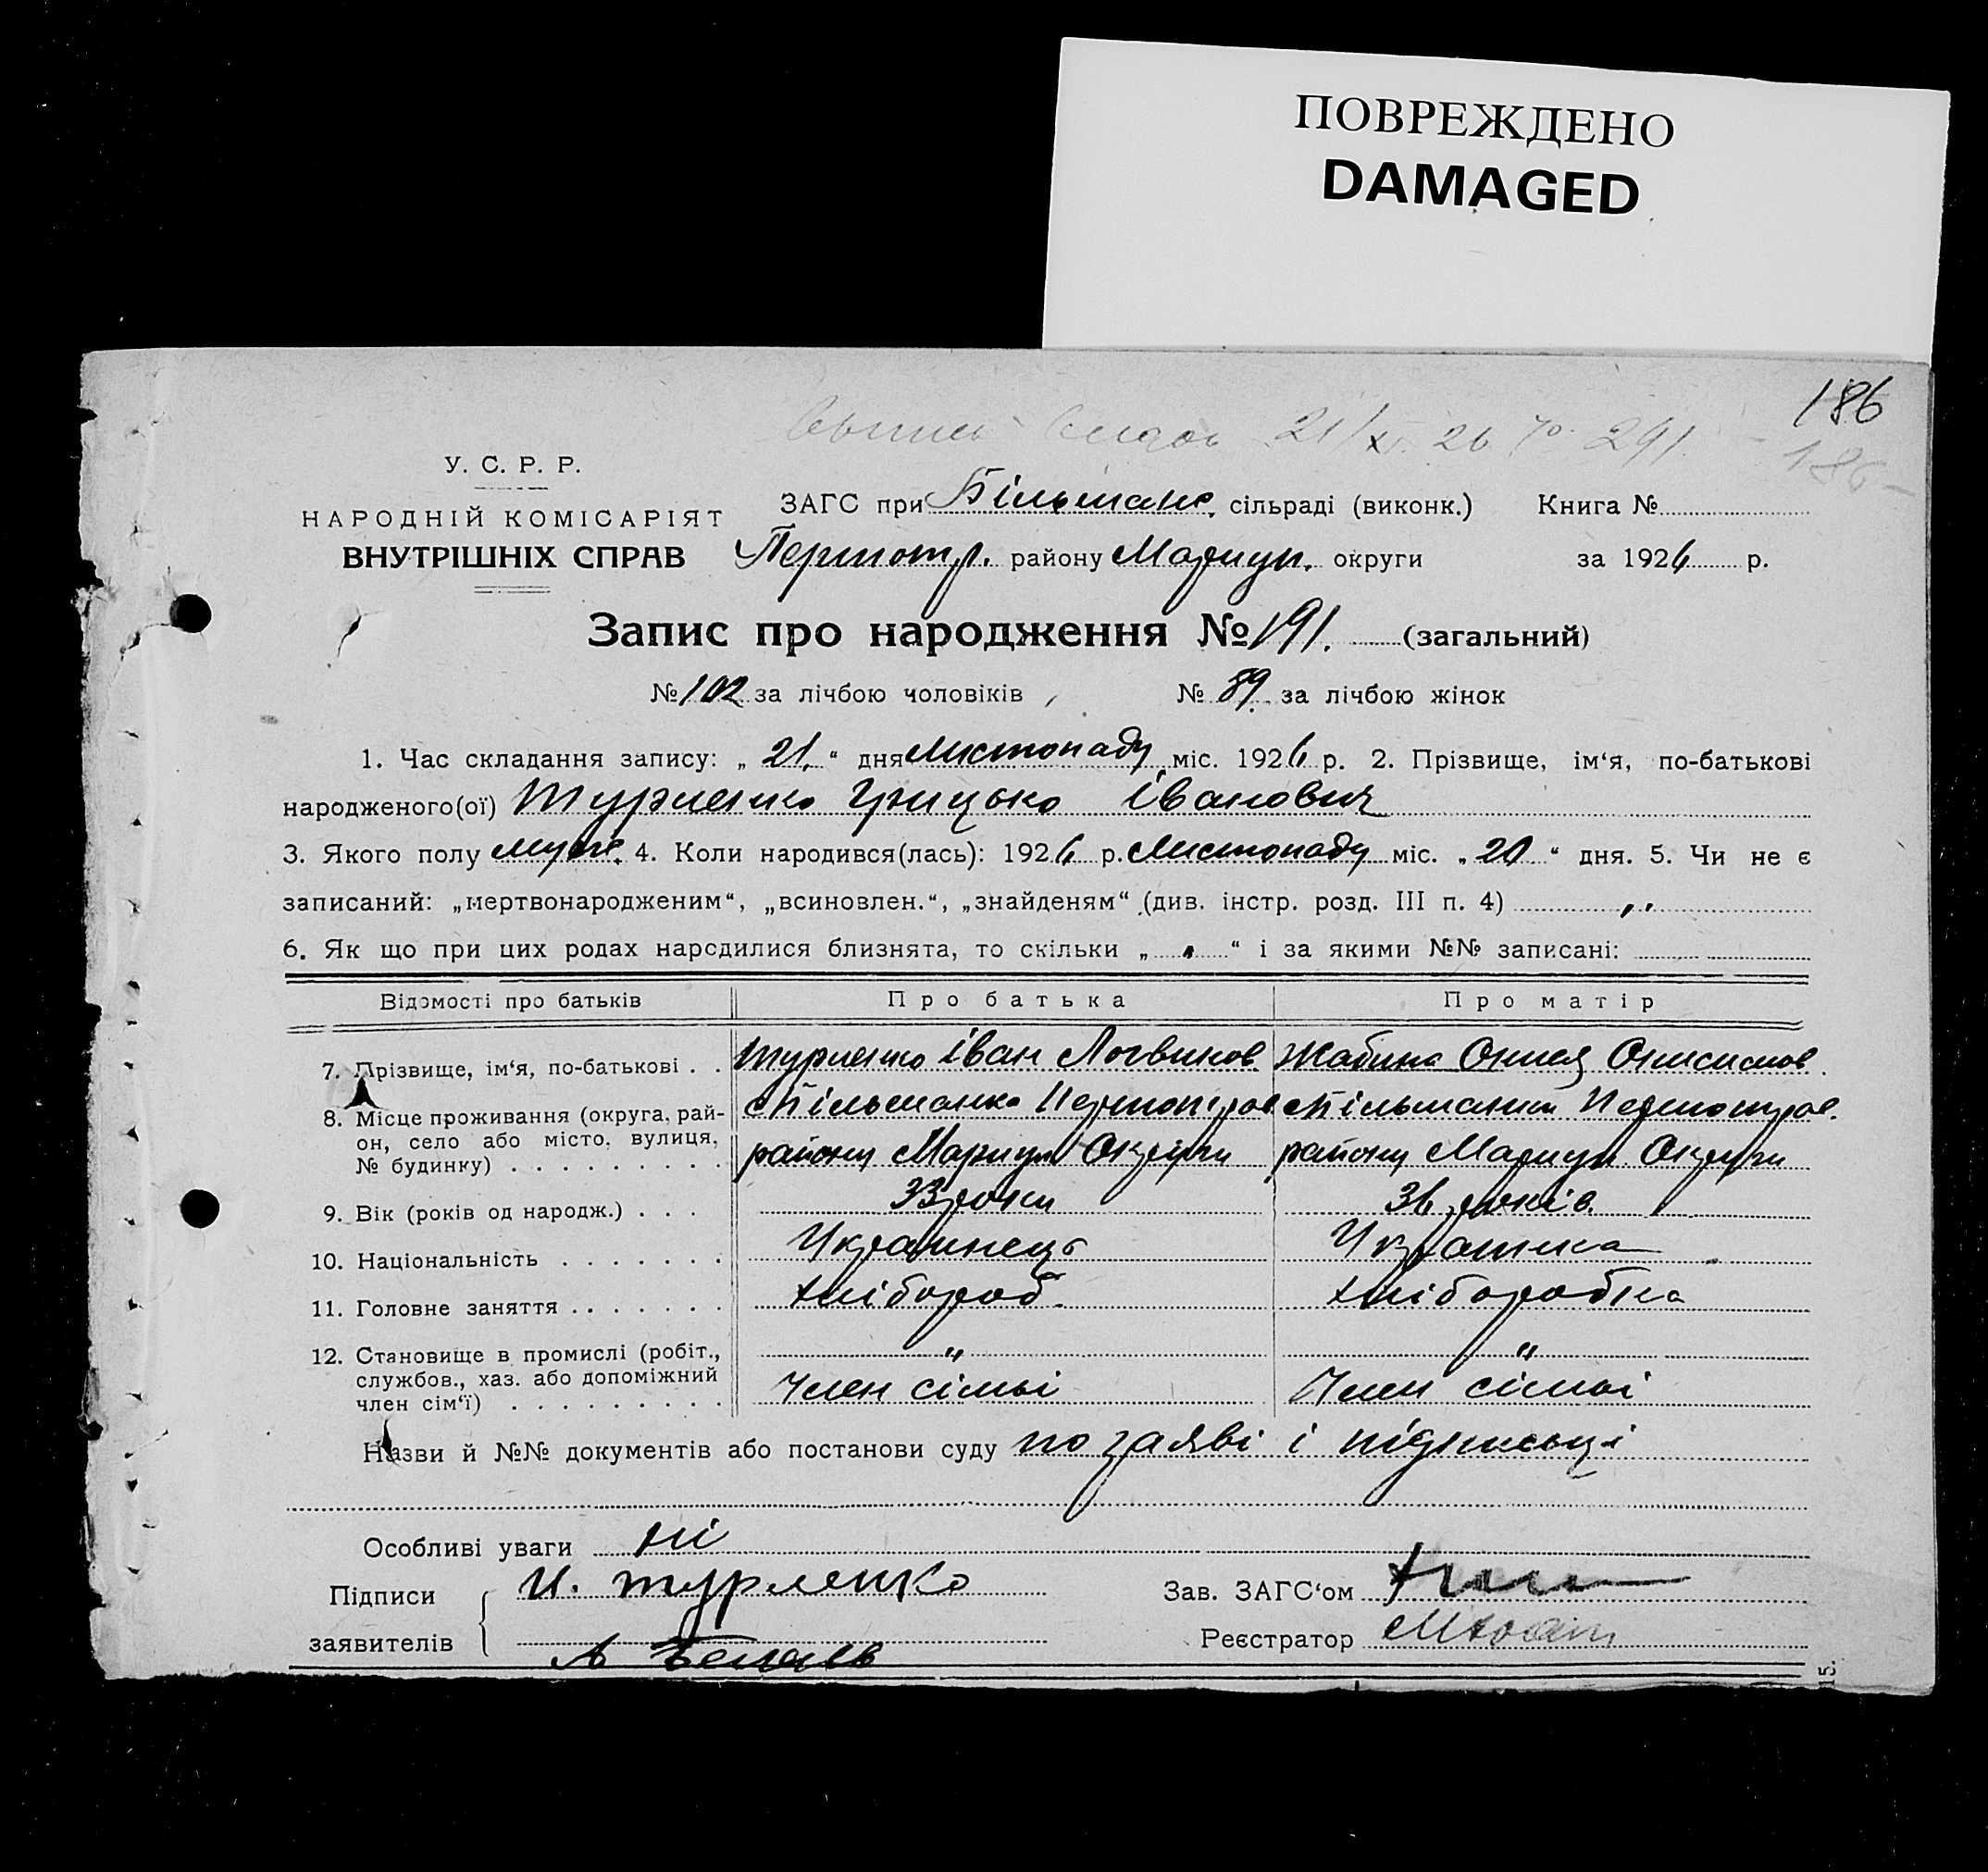 ПОВРЕЖДЕНО
DAMAGED
186
21/XI 26 291
186
У. С. Р. Р.
НАРОДНІЙ КОМІСАРІЯТ
ВНУТРІШНІХ СПРАВ
ЗАГС при Більманс. сільраді (виконк.) Книга №
Першотр. району Мариуп. округи за 1926 р.
Запис про народження № 191. (загальний)
№ 102 за лічбою чоловіків № 89 за лічбою жінок
1. Час складання запису: „ 21 “ дня Листопаду міс. 1926 р. 2. Прізвище, ім‘я, по-батькові
народженого(ої) Турленко Грицько Іванович
3. Якого полу муж. 4. Коли народився(лась): 1926 р. Листопаду міс. „ 20 “ дня. 5. Чи не є
записаний: „мертвонародженим“, „всиновлен.“, „знайденям“ (див. інстр. розд. III п. 4) „
6. Як що при цих родах народилися близнята, то скільки „ “ і за якими №№ записані:
Відомості про батьків Про батька Про матір
7. Прізвище, ім‘я, по-батькові . . Турленко Іван Логвинов Жабина Онисимов.
8. Місце проживання (округа, рай-
он, село або місто, вулиця,
№ будинку) . . . . . . . . .
с Більманка Першотров с Більманка Першотров.
району Мариуп Округи району Мариуп. Округи
9. Вік (років од народж.) . . . 33 роки 36 років.
10. Національність . . . . . . . Украинець Украинка
11. Головне заняття . . . . . . . хлібороб. хліборобка
12. Становище в промислі (робіт.,
службов., хаз. або допоміжний
член сім‘ї) . . . . . . . . .
„ „
Член сімьі Член сімьі
Назви й №№ документів або постанови суду по заяві і підписьці
Особливі уваги ні
Підписи
заявителів
И. Турленко
Зав. ЗАГС‘ом
Реєстратор
15.